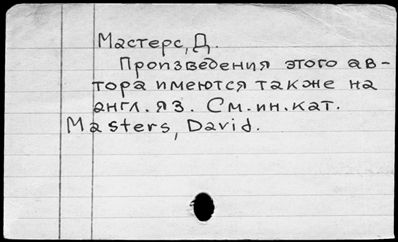 Мастерс, Д.
Произведения этого ав-
тора имеются также на
англ. яз. См. ин. кат.
Masters, David.